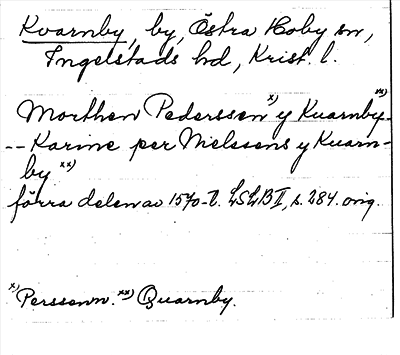 Kvarnby, by, Östra Hoby sn,
Ingelstads hd, Krist. l.
Morthen Pederssen x) y Kuarnby xx)
-- Karine per Nielssens y Kuarn-
by xx)
förra delen av 1570-t. LSLB II, s. 284. orig.
x) Perssonn. xx) Quarnby.